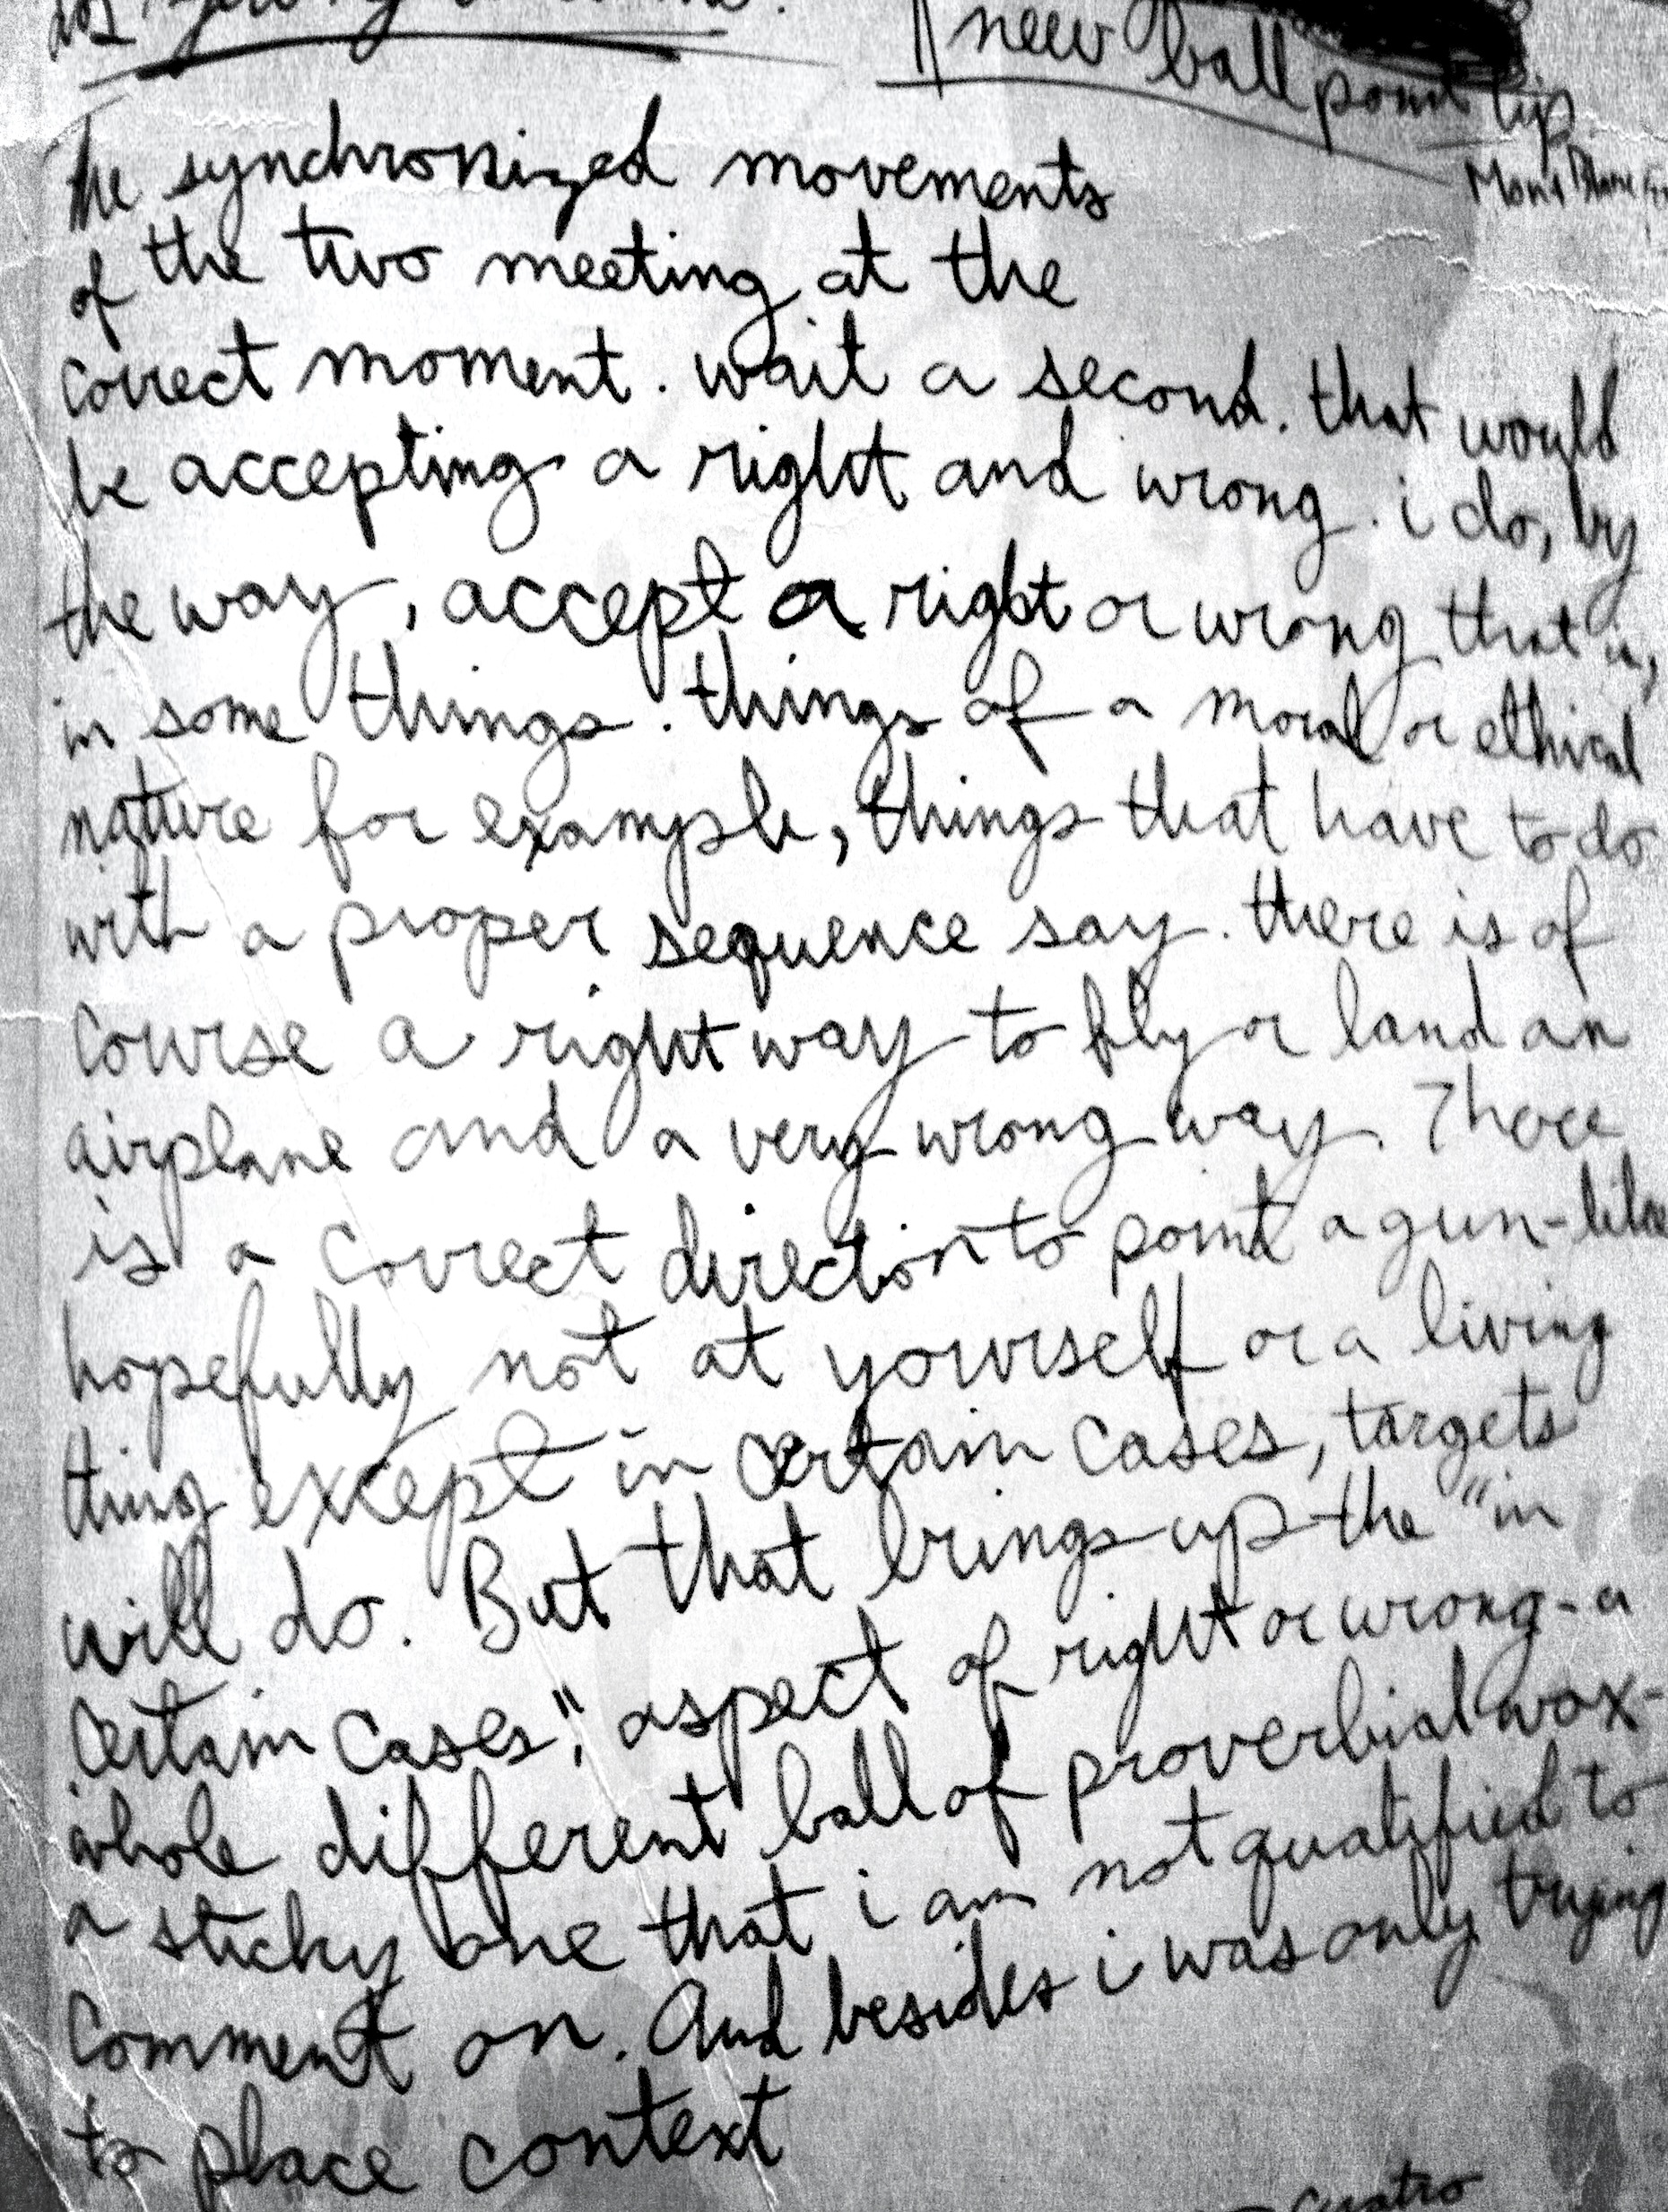 new ball point tip
Mont Blanc
the synchronized movements
of the two meeting at the
correct moment. wait a second. that would
be accepting a right and wrong. i do, by
the way, accept a right or wrong that is,
in some things. things of a moral or ethical
nature for example, things that have to do
with a proper sequence say. there is of
course a right way to fly or land an
airplane and a very wrong way. There
is a correct direction to point a gun-like
hopefully not at yourself or a living
thing except in certain cases, targets
will do. But that brings up the "in
certain cases", aspect of right or wrong-a
whole different ball of proverbial wax-
a sticky one that i am not qualified to
comment on. And besides i was only trying
to place context
cuatro